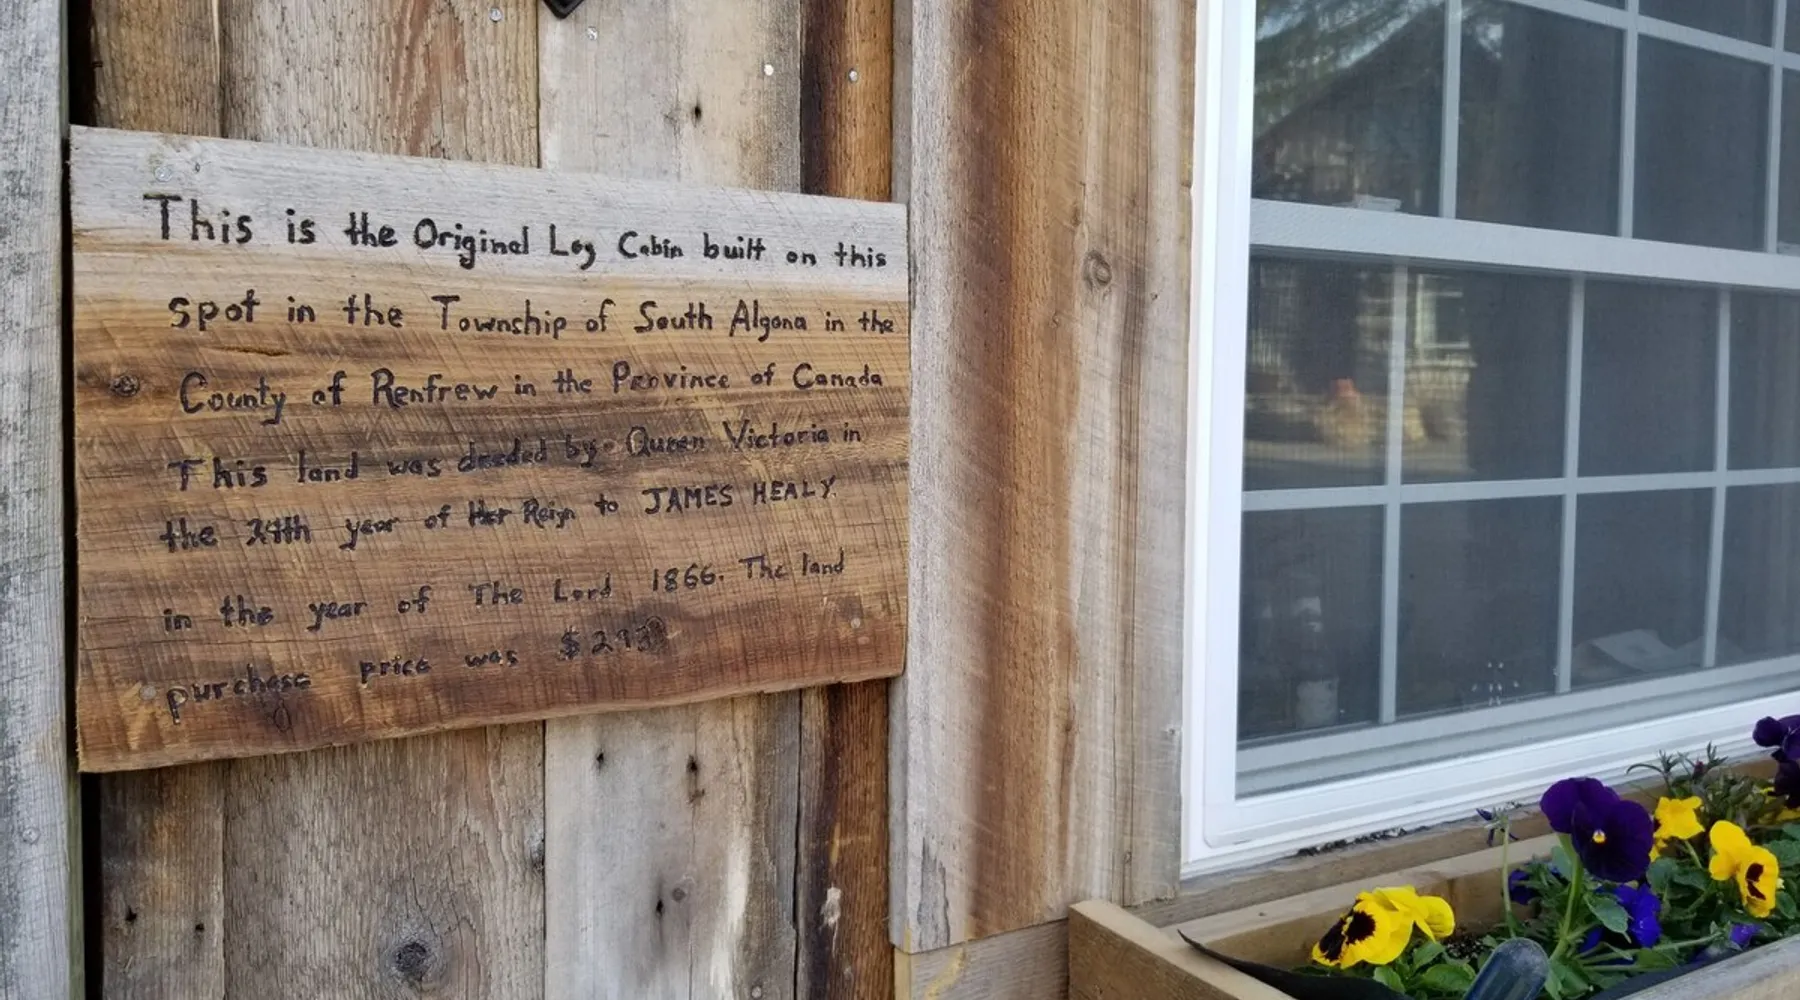 This is the Original Log Cabin built on this
spot in the Township of South Algona in the
County of Renfrew in the Province of Canada
This land was deeded by Queen Victoria in
the year of Her Reign to JAMES HEALY
in the year of The Lord 1866. The land
purchase price was